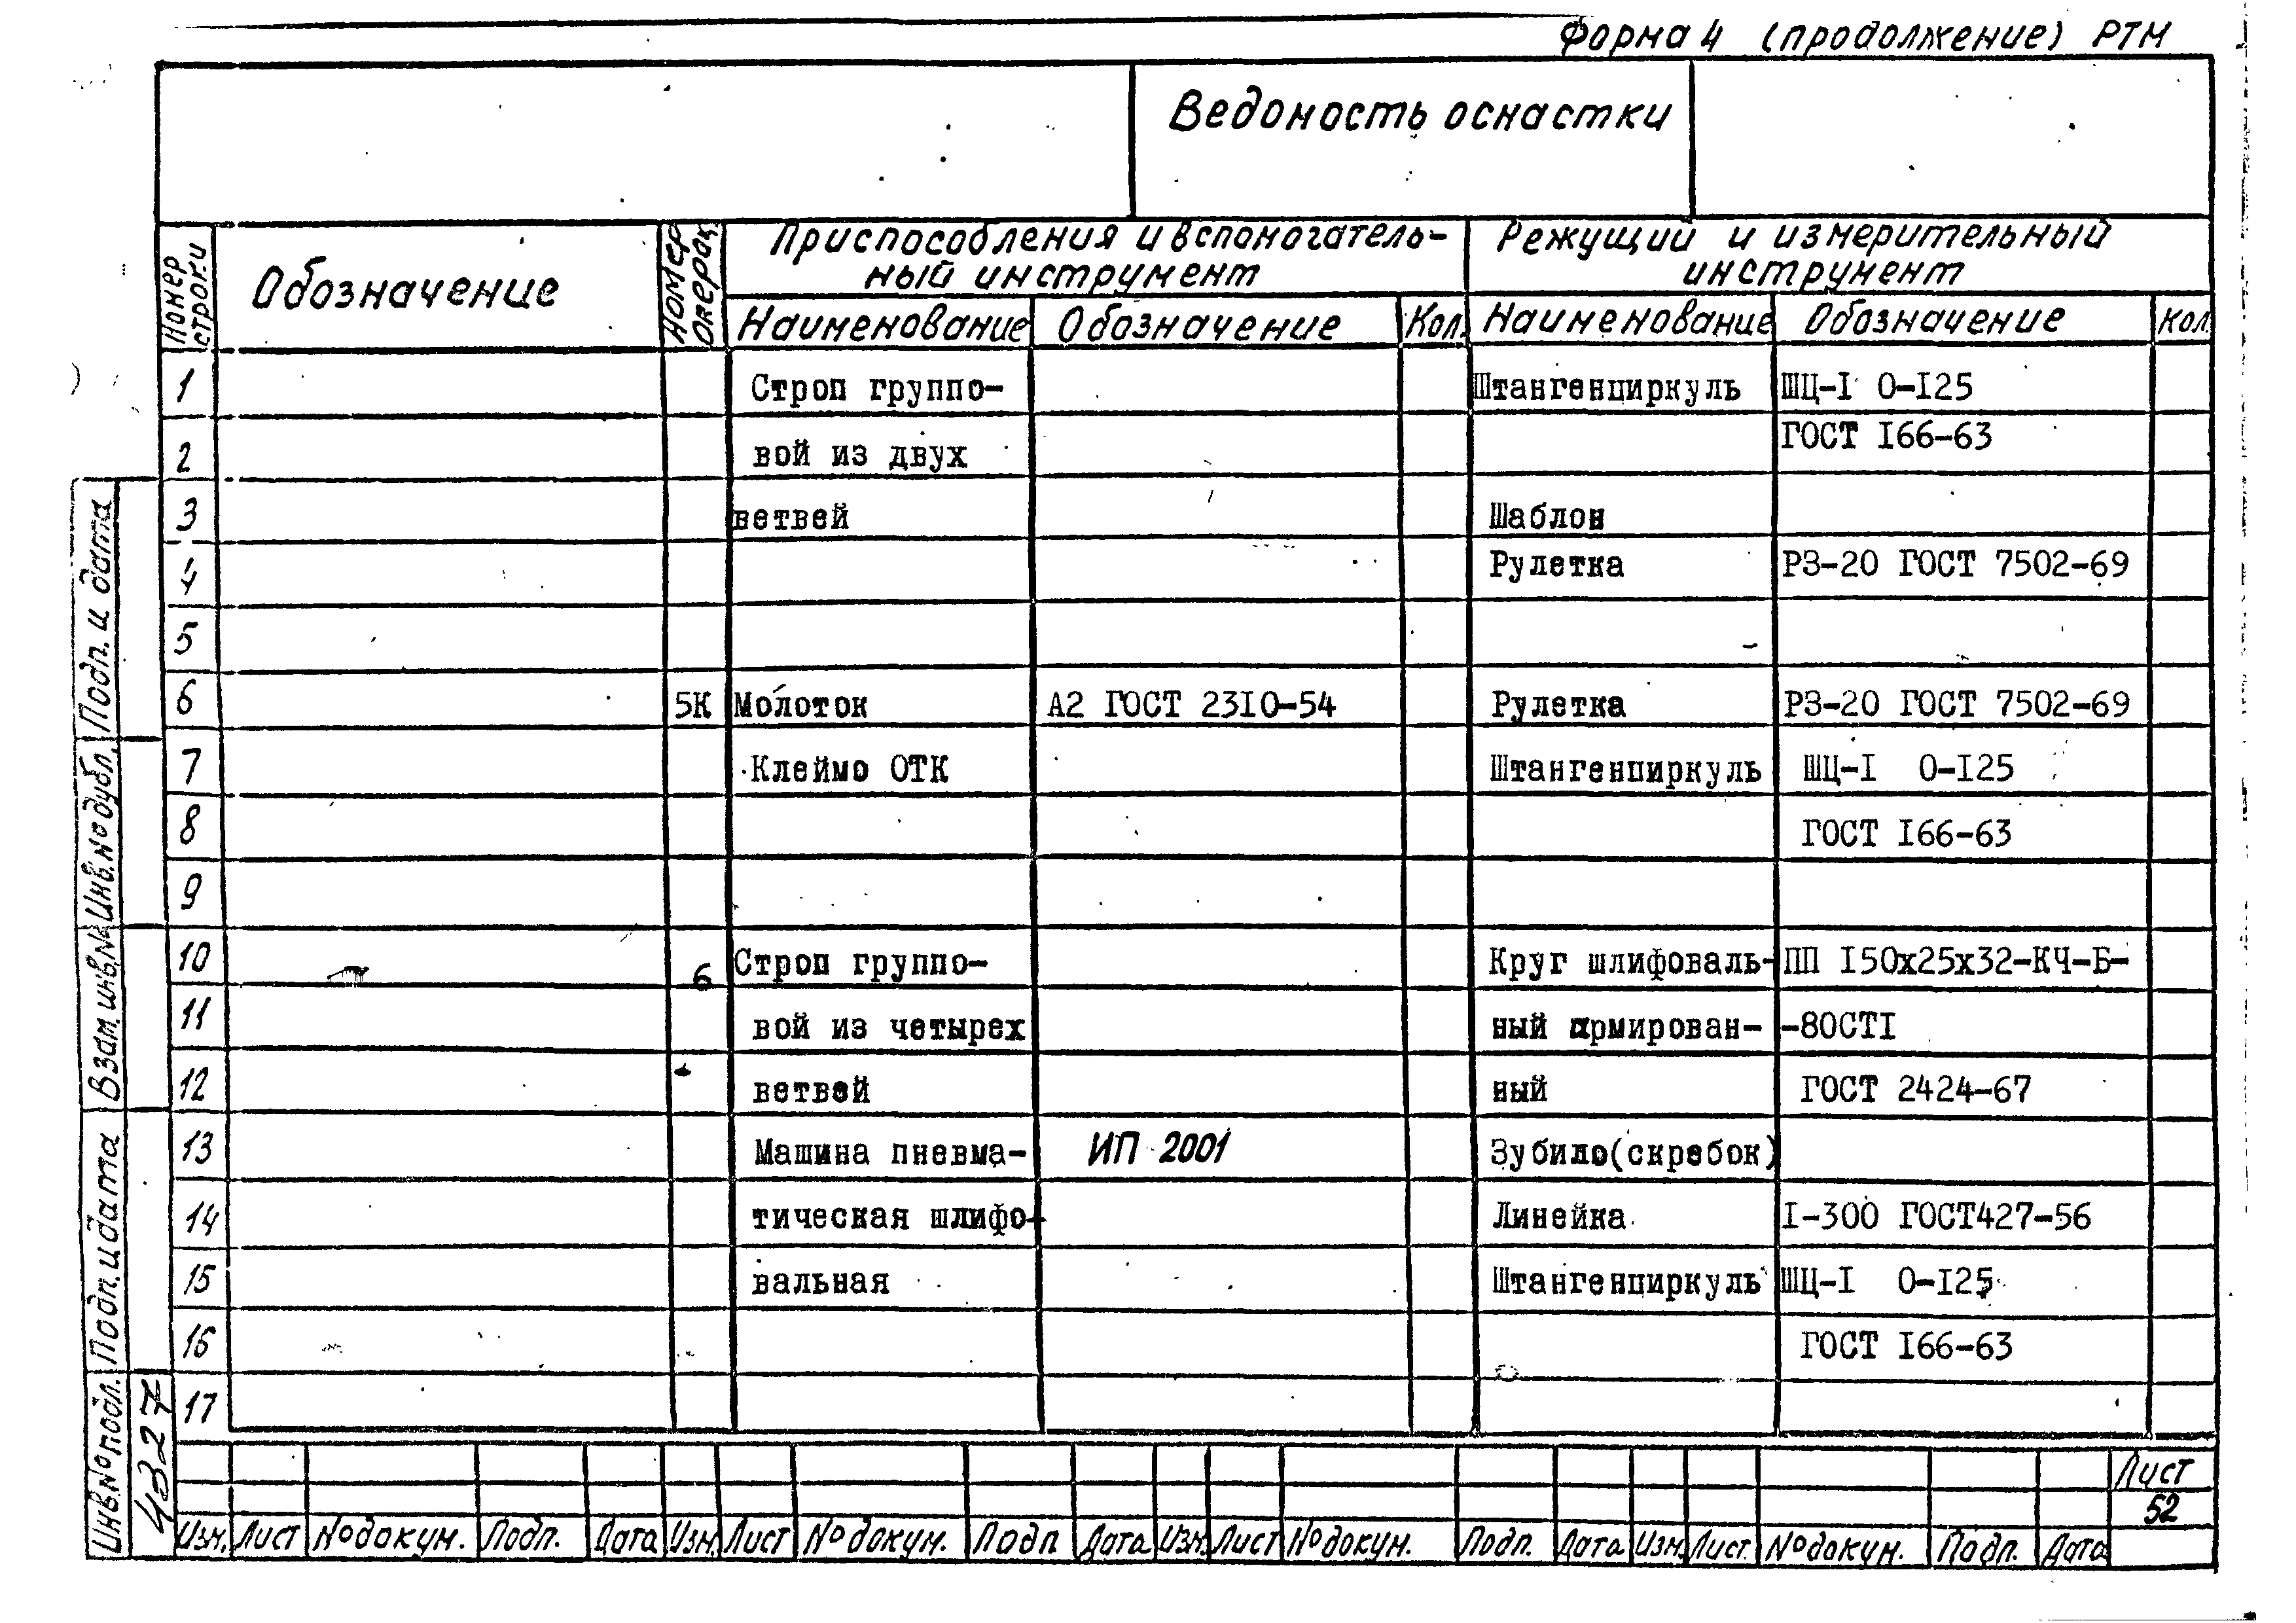 Форма 4 (продолжение) РТМ
Ведомость оснастки
Номер строки
Обозначение
Номер операц.
Приспособления и вспомогатель-
ный инструмент
Режущий и измерительный
инструмент
Наименование Обозначение Кол. Наименование Обозначение Кол.
1 Строп группо- Штангенциркуль ШЦ-I 0-I25
2 вой из двух ГОСТ I66-63
3 ветвей Шаблон
4 Рулетка РЗ-20 ГОСТ 7502-69
5
6 5К Молоток А2 ГОСТ 23I0-54 Рулетка РЗ-20 ГОСТ 7502-69
7 Клеймо ОТК Штангенциркуль ШЦ-I 0-I25
8 ГОСТ I66-63
9
10 6 Строп группо- Круг шлифоваль- ПП I50х25х32-КЧ-Б-
11 вой из четырех ный армирован- -80СТI
12 ветвей ный ГОСТ 2424-67
13 Машина пневма- ИП 2001 Зубило(скребок)
14 тическая шлифо- Линейка I-300 ГОСТ427-56
15 вальная Штангенциркуль ШЦ-I 0-I25
16 ГОСТ I66-63
17
Подп. и дата
Инв.№дубл.
Взам.инв.№
Подп. и дата
Инв.№подл.
4327
Лист
52
Изм. Лист №докум. Подп. Дата Изм. Лист №докум. Подп Дата Изм. Лист №докум. Подп. Дата Изм. Лист. №докум. Подп. Дата